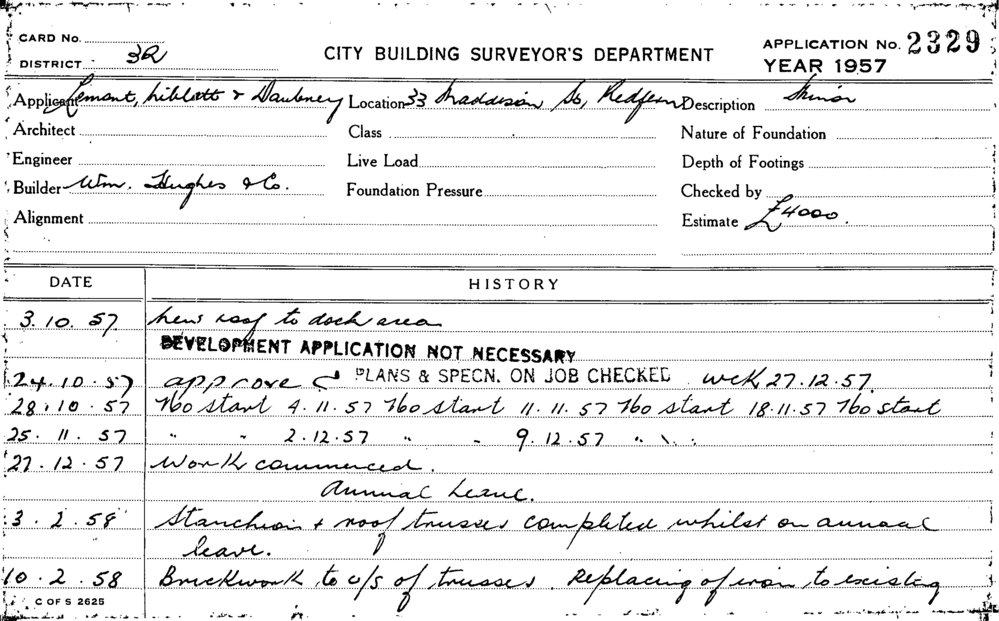 CARD No.
DISTRICT 32
CITY BUILDING SURVEYOR'S DEPARTMENT
APPLICATION No. 2329
YEAR 1957
Applicant & Daubney
Location 33 Maddison St, Redfern
Description Minor
Architect
Class
Nature of Foundation
Engineer
Live Load
Depth of Footings
Builder Wm. Hughes & Co.
Foundation Pressure
Checked by
Alignment
Estimate £4000.
DATE
HISTORY
3.10.57 New roof to dock area
DEVELOPMENT APPLICATION NOT NECESSARY
24.10.57 approved PLANS & SPECN. ON JOB CHECKED WCK 27.12.57.
28.10.57 No start 4.11.57 No start 11.11.57 No start 18.11.57 No start
25.11.57 " " 2.12.57 " " 9.12.57 " "
27.12.57 Work commenced.
Annual Leave.
3.2.58 Stanchion + roof trusses completed whilst on annual
leave.
10.2.58 Brickwork to u/s of trusses. Replacing of iron to existing
C OF S 2625